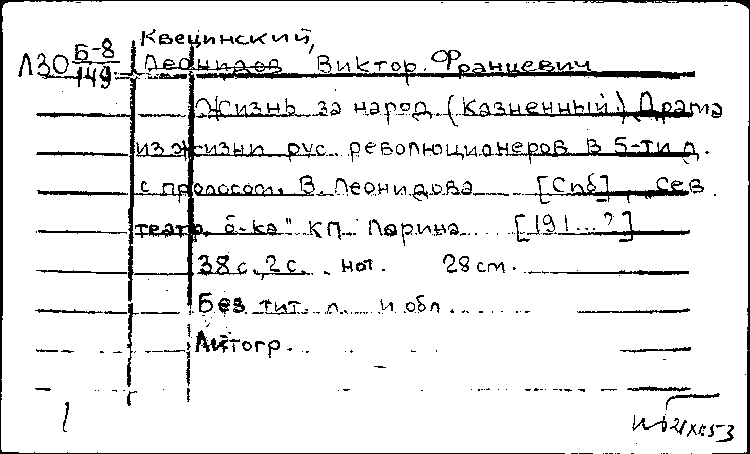 Квецинский,
Л30 Б-8/149 Леонидов Виктор Францевич
Жизнь за народ (Казненный.) Драма
из жизни рус. революционеров в 5-ти д.
с прологом. В. Леонидова [Спб], "Сев.
театр. б-ка" КП Ларина [191...?]
38 с., 2 с. нот. 28 см.
Без тит. л. и обл.
Литогр.
1
53